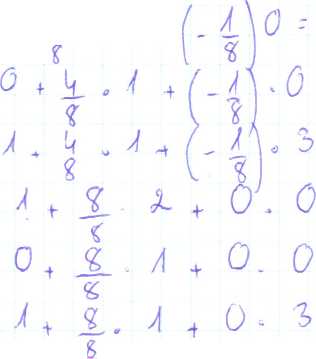 (-1/8) 0 =
8
0 + 4/8 · 1 + (-1/8) · 0
1 · 4/8 · 1 + (-1/8) · 3
1 + 8/8 · 2 + 0 · 0
0 + 8/8 · 1 + 0 · 0
1 + 8/8 · 1 + 0 · 3